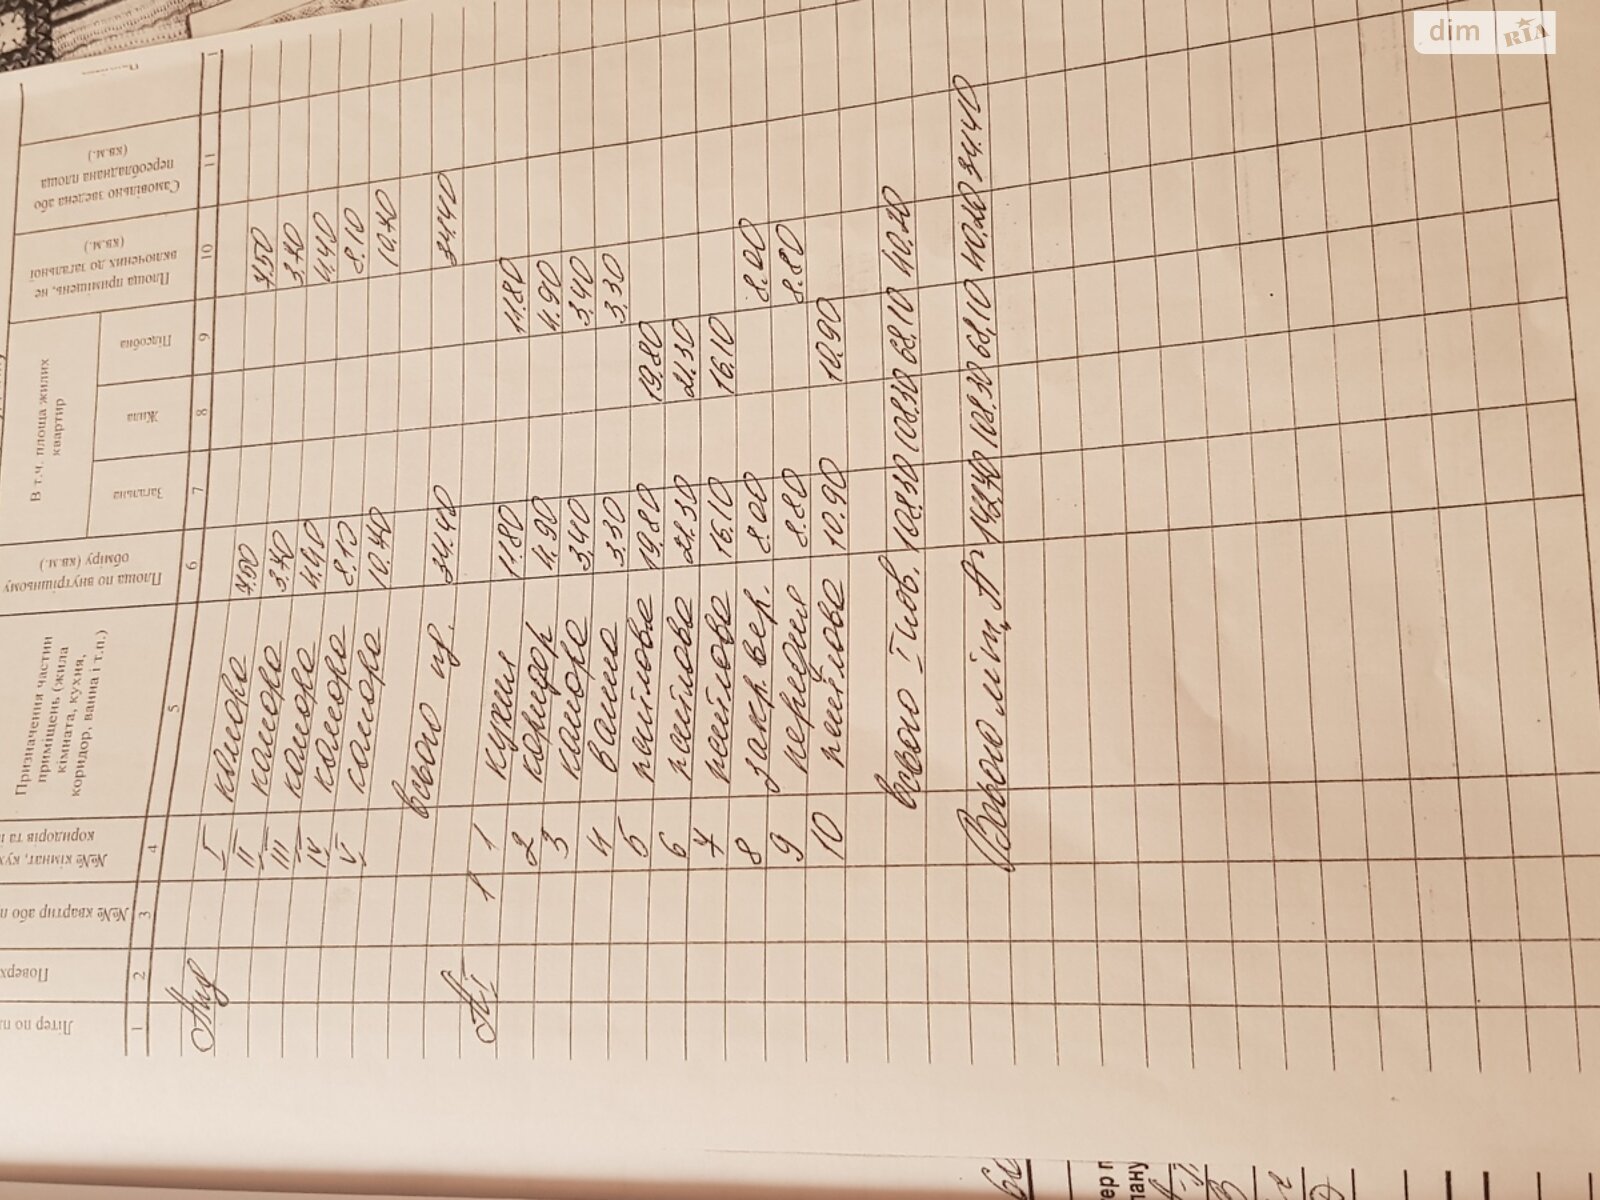 dim RIA
Літер по п
Поверх
№№ квартир або п
№№ кімнат, кух
коридорів та і
Призначення частин
приміщень (жила
кімната, кухня,
коридор, ванна і т.п.)
Площа по внутрішньому
обміру (кв.м.)
В т.ч. площа жилих
квартир
Загальна
Жила
Підсобна
Площа приміщень, не
включених до загальної
(кв.м.)
Самовільно зведена або
переобладнана площа
(кв.м.)
1 2 3 4 5 6 7 8 9 10 11
Апд I комора 7.50 7.50
II комора 3.70 3.70
III комора 4.40 4.40
IV комора 8.10 8.10
V комора 10.70 10.70
всього пд. 34.40 34.40
А-I 1 1 кухня 11.80 11.80
2 коридор 4.90 4.90
3 комора 3.40 3.40
4 ванна 3.30 3.30
5 житлова 19.80 19.80
6 житлова 21.30 21.30
7 житлова 16.10 16.10
8 закр. вер. 8.00 8.00
9 передня 8.80 8.80
10 житлова 10.90 10.90
всього I пов. 108.30 108.30 68.10 40.20
Всього літ. "А" 142.70 108.30 68.10 40.20 34.40